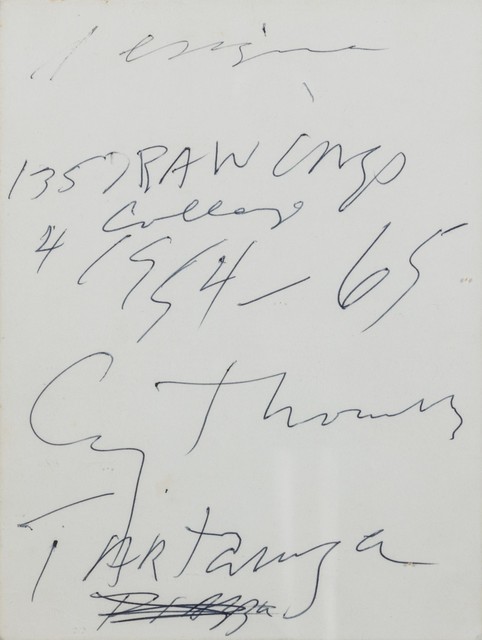 135 DRAWINGS
4 Collage
1954 - 65
Cy Twombly
TARTaruga